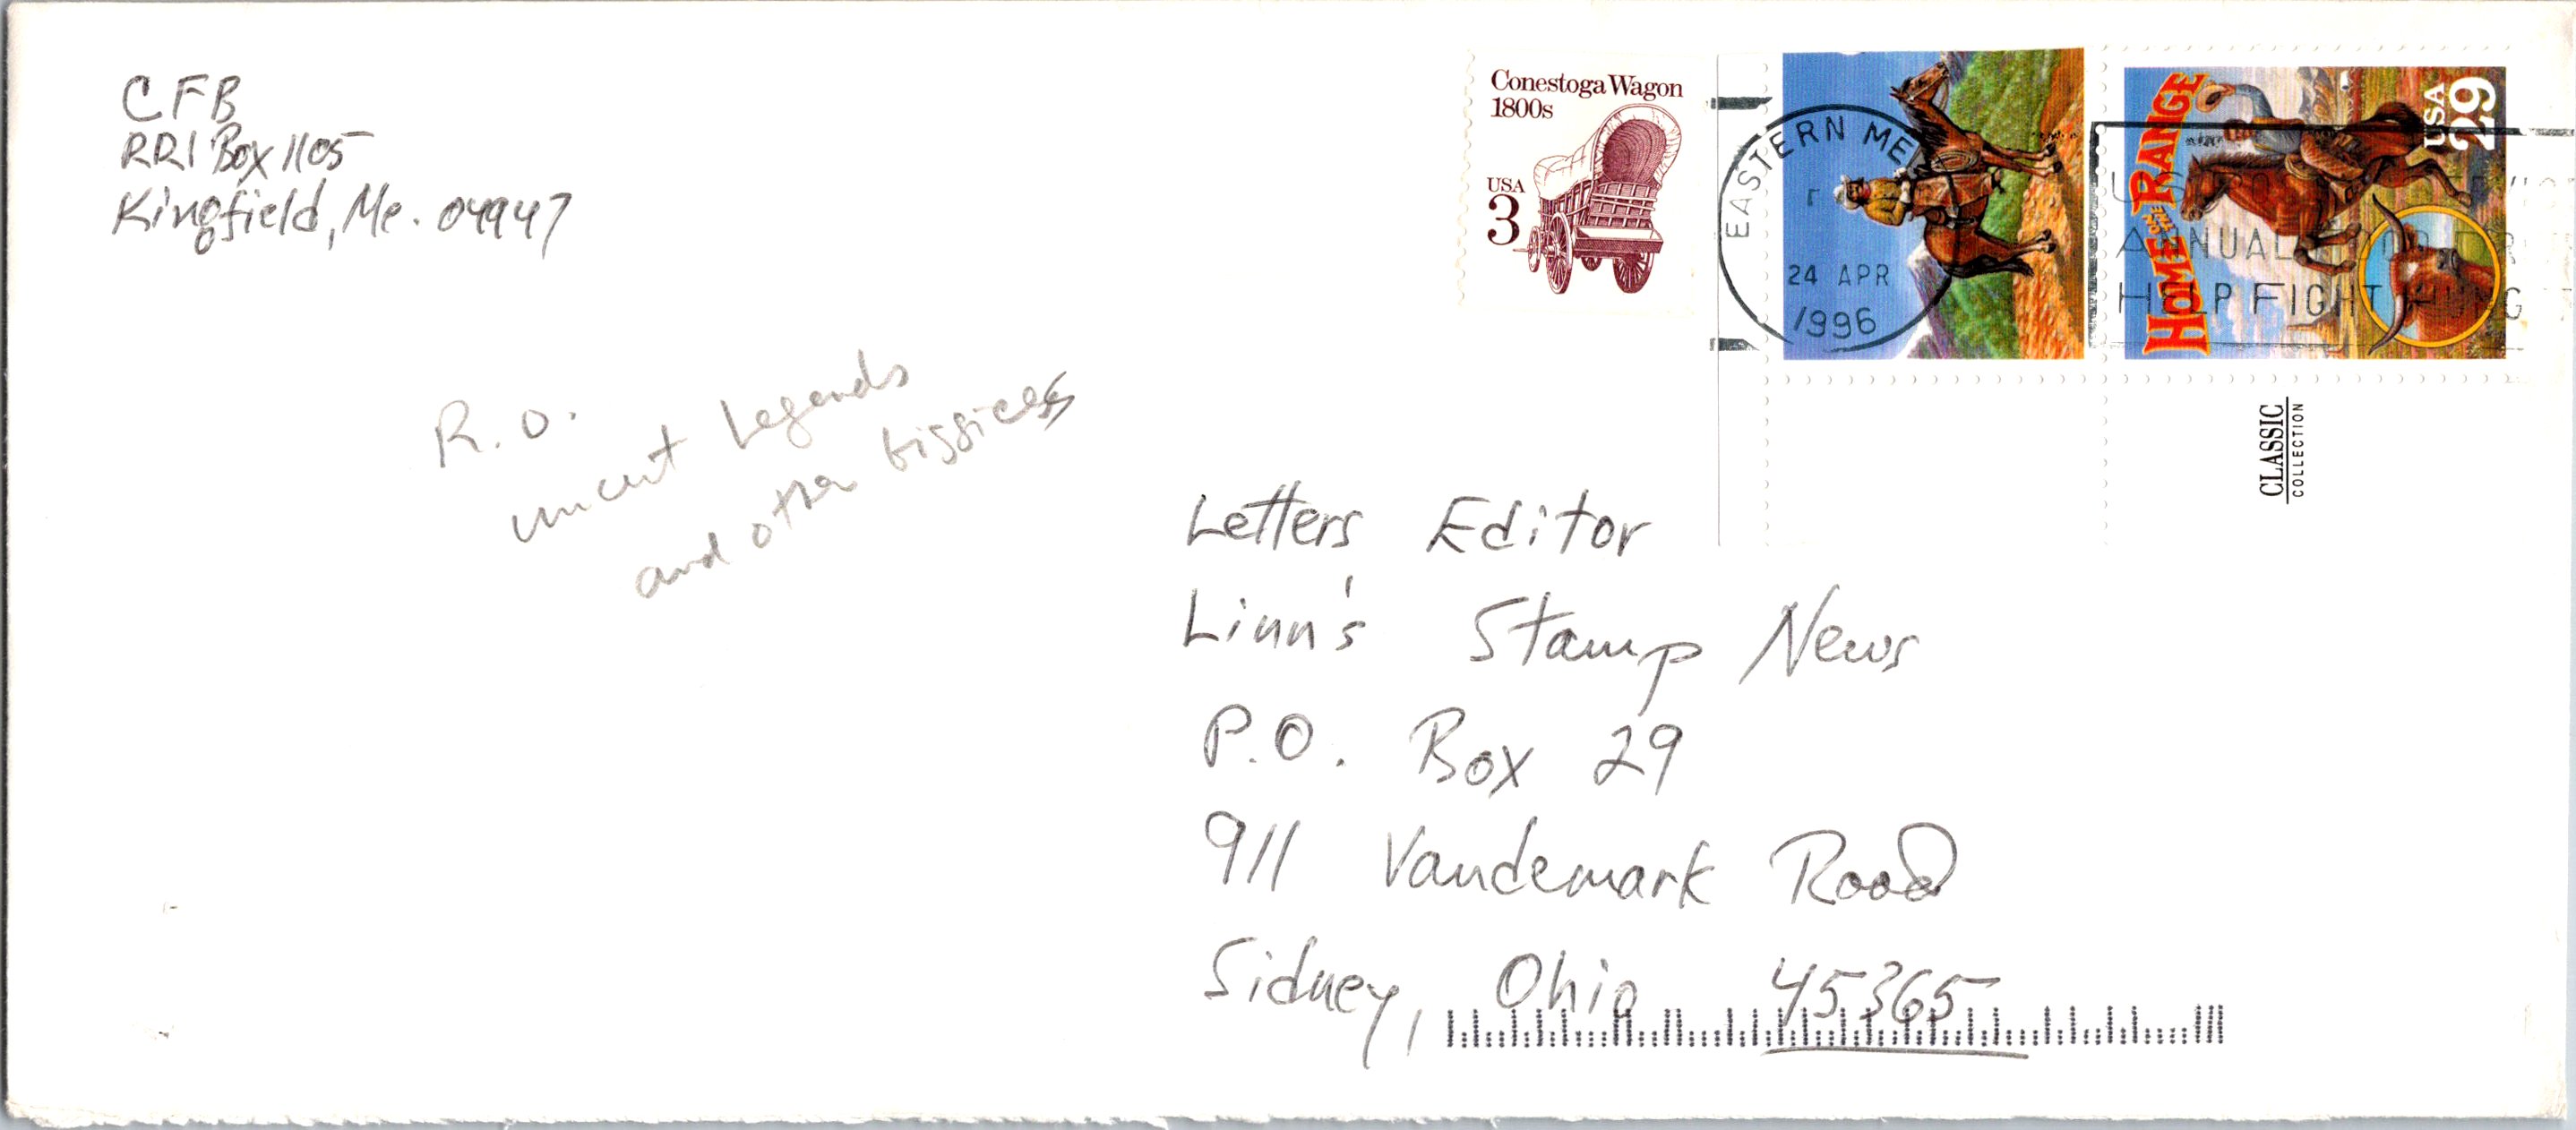 CFB
RR1 Box 1105
Kingfield, Me. 04947
Conestoga Wagon
1800s
USA
3
EASTERN ME
24 APR
1996
HOME on the RANGE
USA
29
ANNUAL FOOD DR
HELP FIGHT HUNG
CLASSIC
COLLECTION
R.O.
uncut Legends
and other
Letters Editor
Linn's Stamp News
P.O. Box 29
911 Vandemark Road
Sidney, Ohio 45365